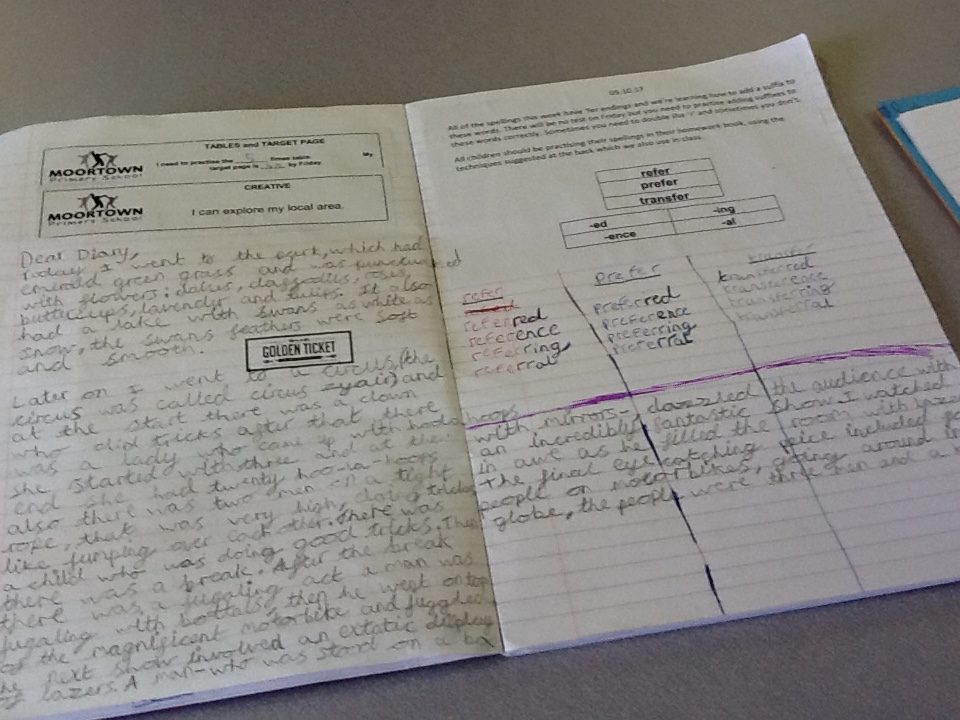 TABLES and TARGET PAGE
MOORTOWN
Primary School
I need to practise the 9 times table. My
target page is by Friday.
CREATIVE
MOORTOWN
Primary School
I can explore my local area.
Dear Diary,
Today I went to the park, which had
emerald green grass and was punctuated
with flowers: daisies, daffodils, roses,
buttercups, lavender and tulips. It also
had a lake with swans as white as
snow, the swans feathers were soft
and smooth.
GOLDEN TICKET
Later on I went to a circus, (the
circus was called circus zyair) and
at the start there was a clown
who did tricks after that there
was a lady who came up with hoola
she started with three and at the
end she had twenty hoo-la-hoops
also there was two men on a tight
rope, that was very high, doing tricks
like jumping over each other. There was
a child who was doing good tricks. Then
there was a break. After the break
there was a juggaling act a man was
juggaling with bottals, then he went ontop
of the magnificent motorbike and juggled
the next show involved an extatic display
by lazers. A man-who was stood on a
05.10.17
All of the spellings this week have 'fer endings and we're learning how to add a suffix to
these words. There will be no test on Friday but you need to practise adding suffixes to
these words correctly. Sometimes you need to double the 'r' and sometimes you don't.
All children should be practising their spellings in their homework book, using the
techniques suggested at the back which we also use in class.
refer
prefer
transfer
-ed -ing
-ence -al
refer prefer transfer
referred preferred transferred
reference preference transference
referring preferring transferring
referral preferral transferral
hoops
with mirrors- dazzled the audience with
an incredibly fantastic show. I watched
in awe as he filled the room with lazers
The final eye catching peice included
people on motorbikes, going around in
globe, the people were three men and a